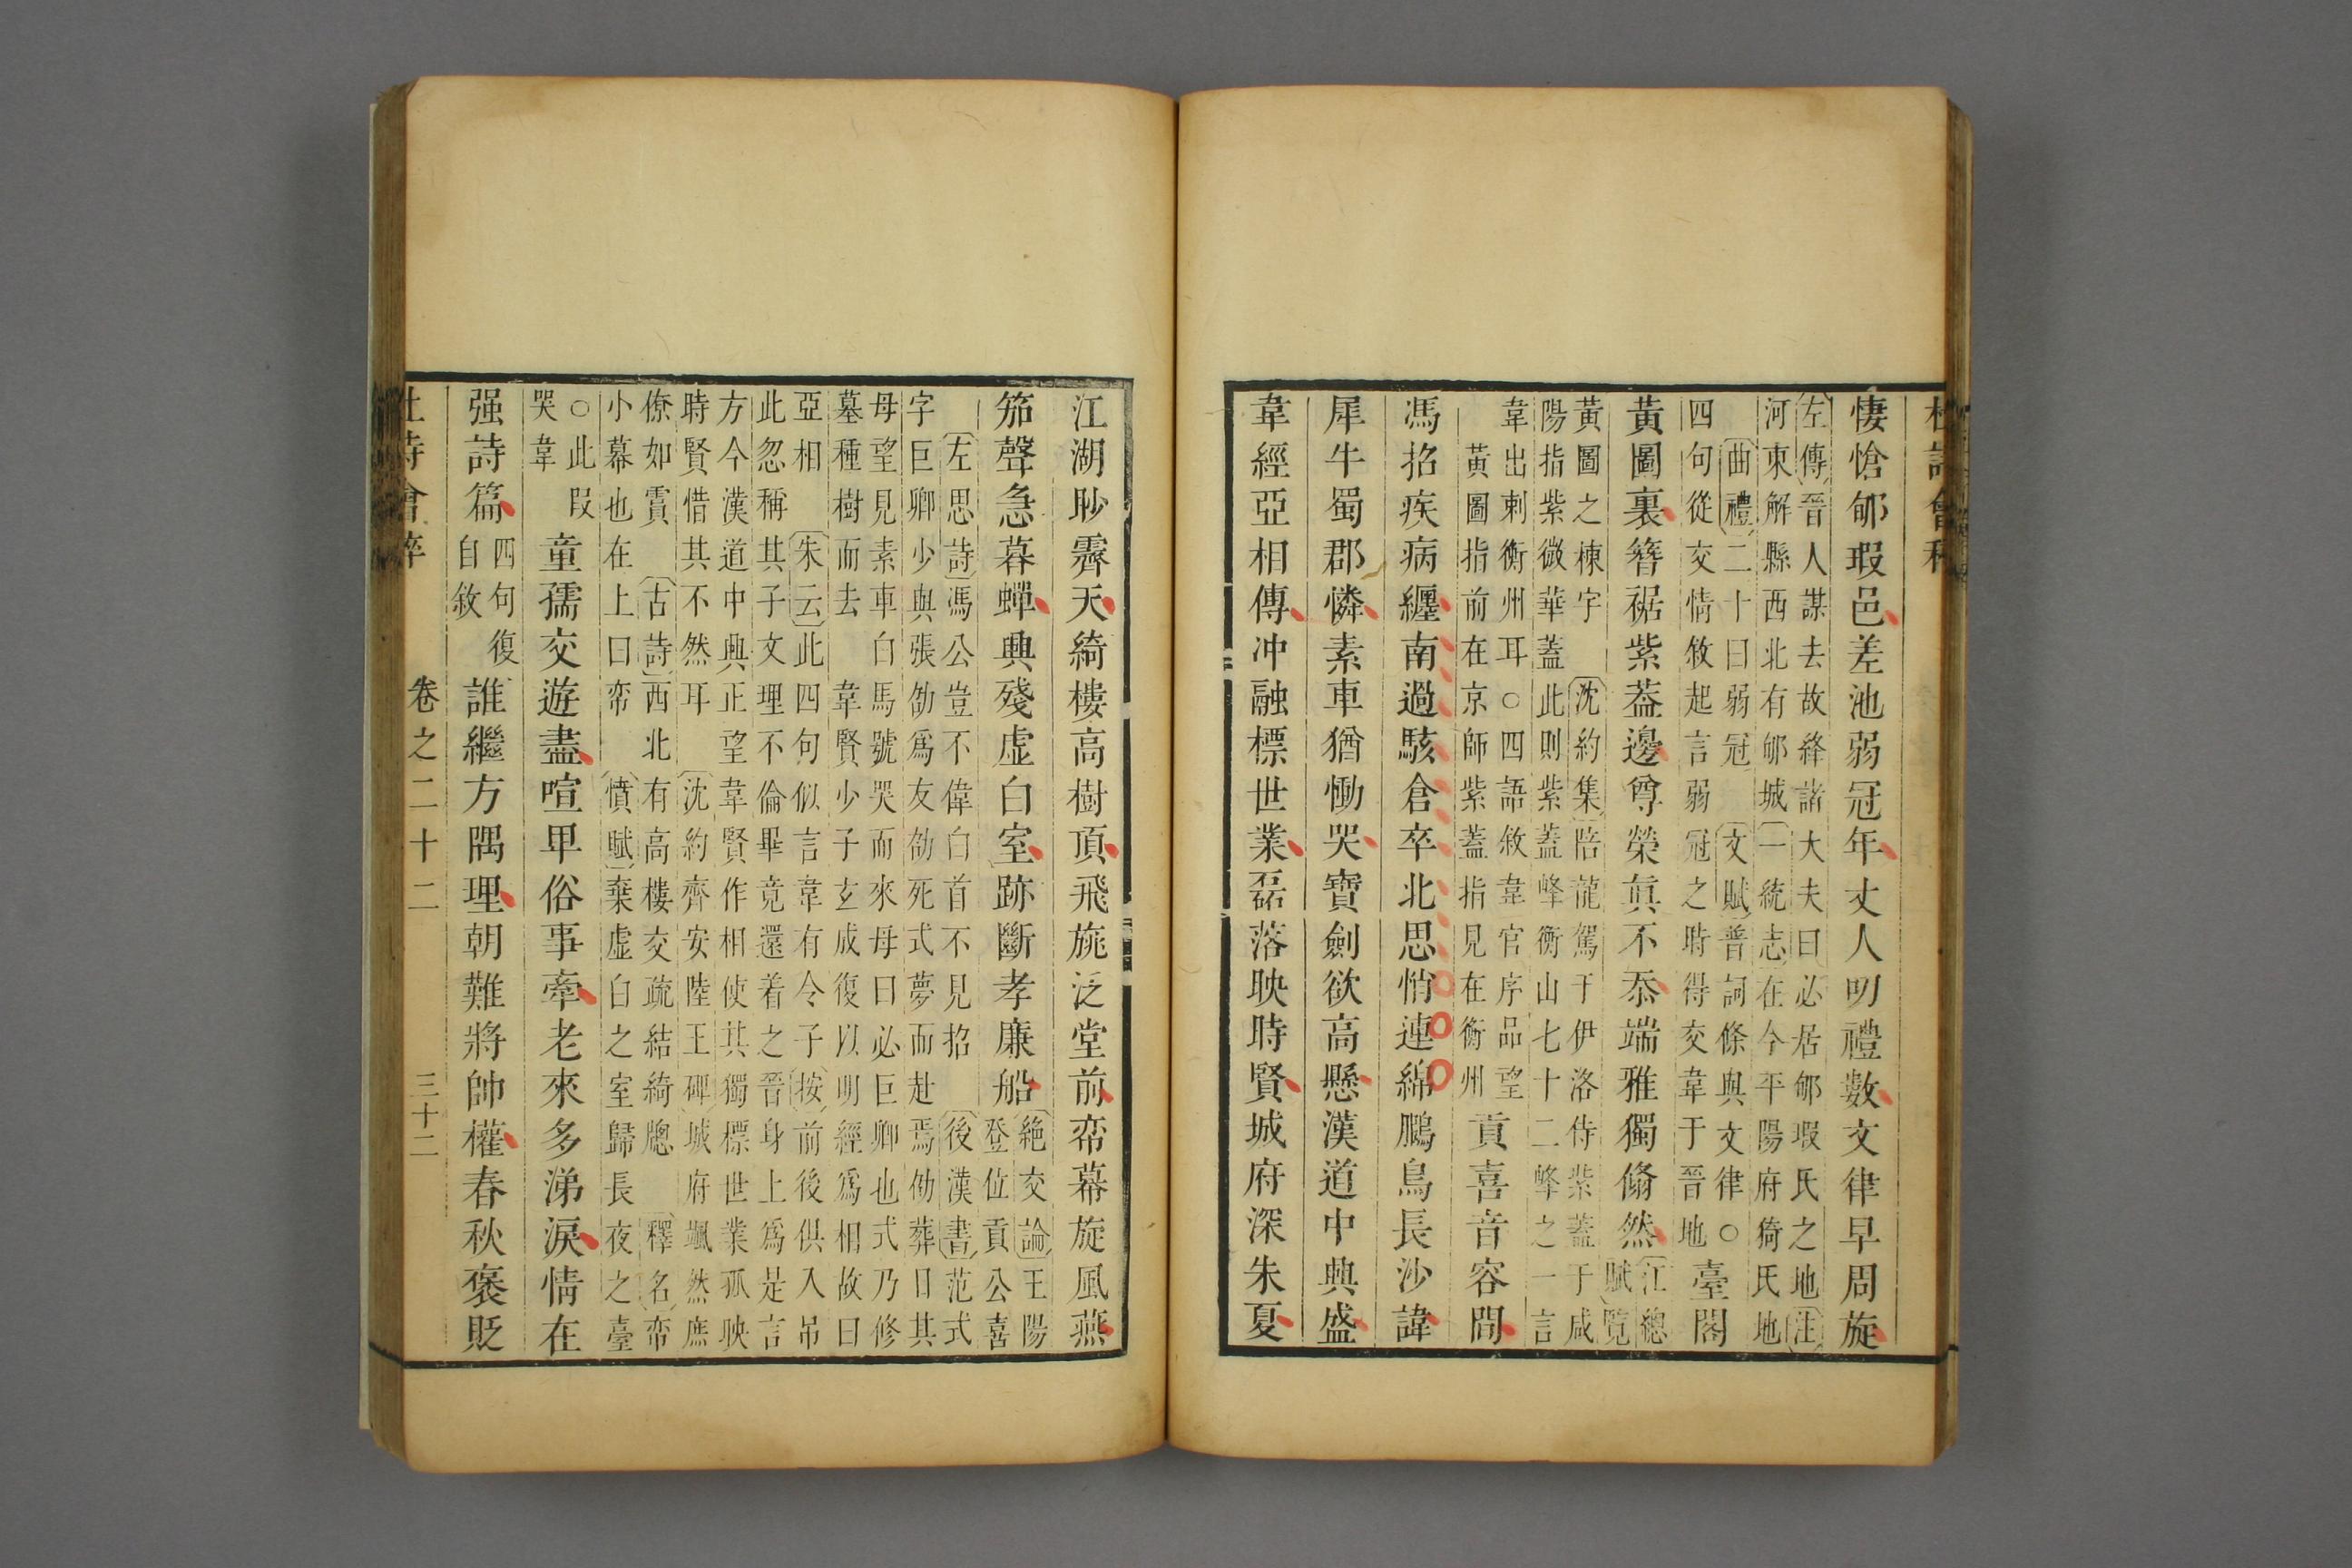 杜詩會稡
悽愴郇瑕邑差池弱冠年丈人明禮數文律早周旋
左傳晉人謀去故絳諸大夫曰必居郇瑕氏之地注
河東解縣西北有郇城一統志在今平陽府猗氏地
曲禮二十曰弱冠文賦普詞條與文律○
四句從交情敘起言弱冠之時得交韋于晉地
臺閣
黃圖裏簪裾紫葢邊尊榮真不忝端雅獨翛然
江總
賦覽
黃圖之棟字沈約集陪龍駕于伊洛侍紫蓋于咸
陽指紫微華蓋此則紫蓋峰衡山七十二峰之一言
韋出刺衡州耳○四語敘韋官序品望
黃圖指前在京師紫蓋指見在衡州
貢喜音容間
馮招疾病纏南過駭倉卒北思悄連綿鵩鳥長沙諱
犀牛蜀郡憐素車猶慟哭寶劍欲高懸漢道中興盛
韋經亞相傳冲融標世業磊落映時賢城府深朱夏
江湖眇霽天綺樓高樹頂飛旐泛堂前帟幕旋風燕
笳聲急暮蟬興殘虛白室跡斷孝廉船
絕交論王陽
登位貢公喜
左思詩馮公豈不偉白首不見招後漢書范式
字巨卿少與張劭爲友劭死式夢而赴焉劭葬日其
母望見素車白馬號哭而來母曰必巨卿也式乃修
墓種樹而去韋賢少子玄成復以明經爲相故曰
亞相朱云此四句似言韋有令子按前後俱入吊
此忽稱其子文理不倫畢竟還着之晉身上爲是言
方今漢道中興正望韋賢作相使其獨標世業孤映
時賢惜其不然耳沈約齊安陸王碑城府颯然庶
僚如霣古詩西北有高樓交疏結綺牕釋名帟
小幕也在上曰帟憤賦棄虛白之室歸長夜之臺
○此叚
哭韋
童孺交遊盡喧卑俗事牽老來多涕淚情在
强詩篇
四句復
自敘
誰繼方隅理朝難將帥權春秋褒貶
杜詩會稡
卷之二十二
三十二